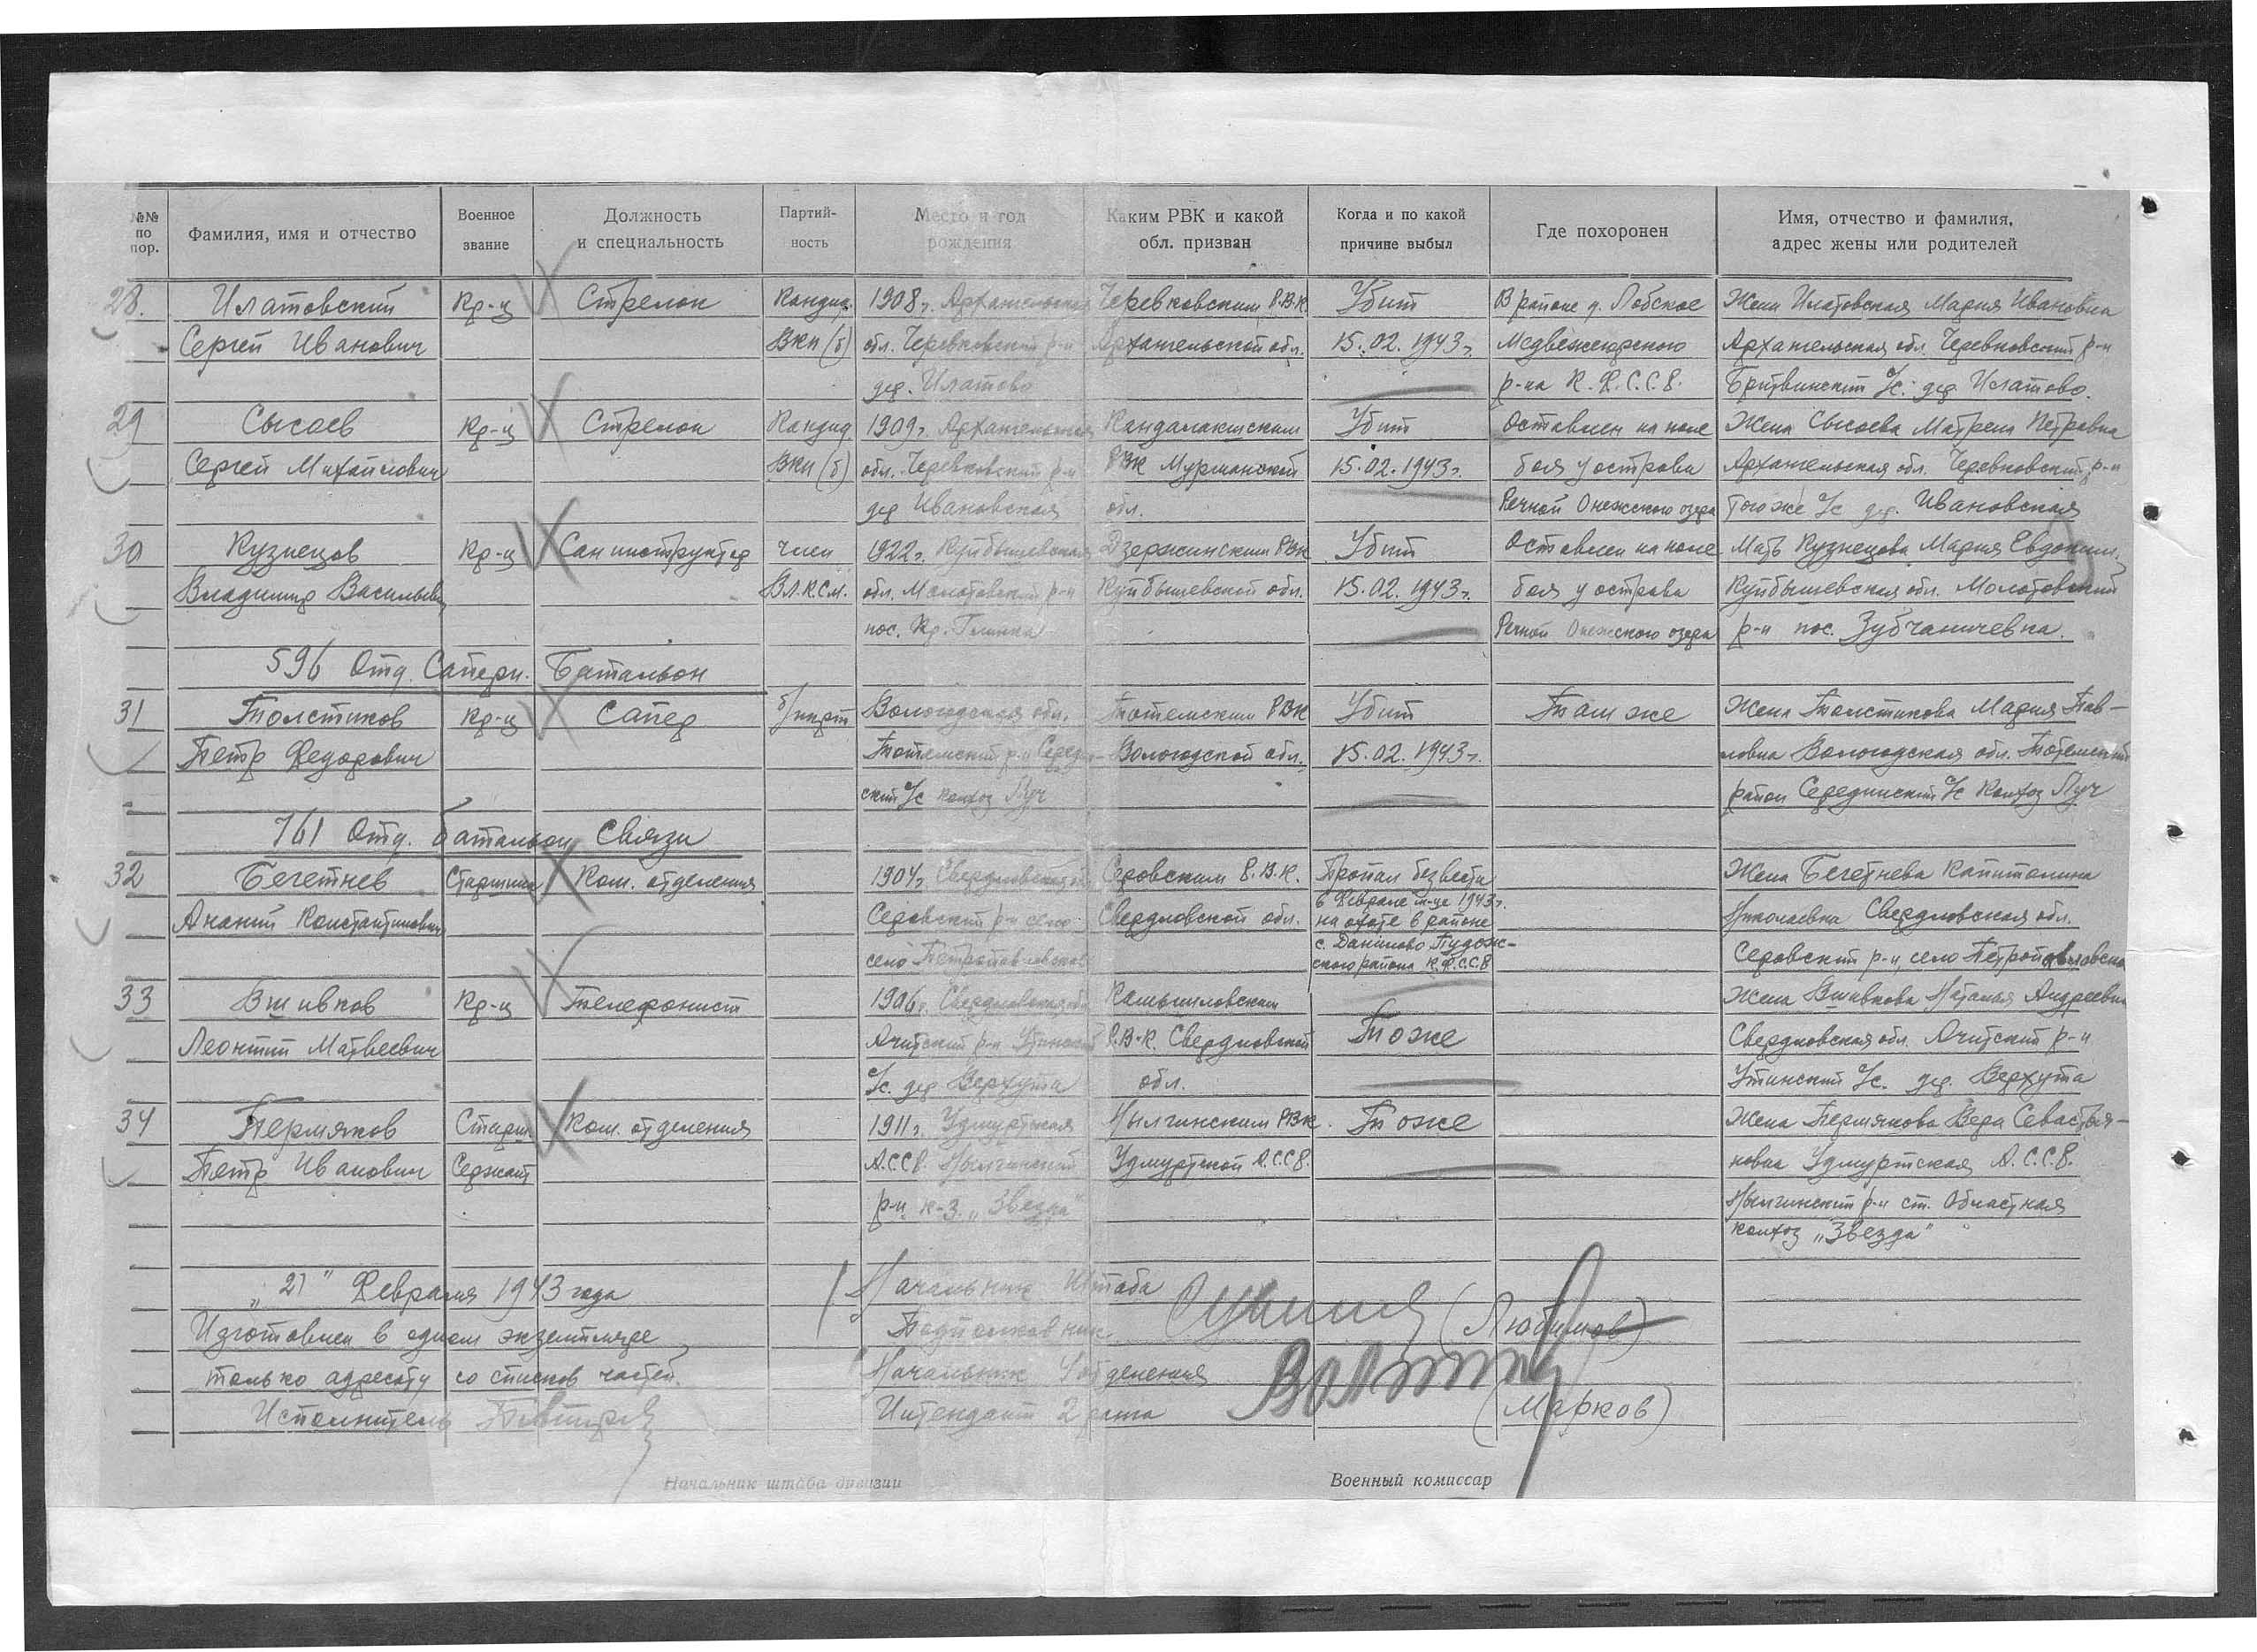 №№ по пор. Фамилия, имя и отчество Военное звание Должность и специальность Партий-ность Место и год рождения Каким РВК и какой обл. призван Когда и по какой причине выбыл Где похоронен Имя, отчество и фамилия, адрес жены или родителей
28. Илатовский Кр-ц Стрелок Кандид. 1908г. Архангельская Черевковским Р.В.К. Убит В районе д. Лобское Жена Илатовская Мария Ивановна
Сергей Иванович ВКП(б) обл. Черевковский р-н Архангельской обл. 15.02.1943г. Медвежегорского Архангельская обл. Черевковский р-н
дер. Илатово р-на К.Ф.С.С.Р. с/с. дер. Илатово.
29 Сысоев Кр-ц Стрелок Кандид. 1909г. Архангельская Кандалакшским Убит Оставлен на поле Жена Сысоева Матрена Петровна
Сергей Михайлович ВКП(б) обл. Черевковский р-н РВК Мурманской 15.02.1943г. боя у острова Архангельская обл. Черевковский р-н
дер Ивановская обл. Речной Онежского озера Того же с/с дер. Ивановская
30 Кузнецов Кр-ц Сан инструктор член 1922г. Куйбышевская Дзержинским РВК Убит Оставлен на поле Мать Кузнецова Мария Евдоким.
Владимир Васильевич ВЛ.К.С.М. обл. Молотовский р-н Куйбышевской обл. 15.02.1943г. боя у острова Куйбышевская обл. Молотовский
пос. Кр. Речной Онежского озера р-н пос. Зубчаничевка.
596 Отд. Саперн. Батальон
31 Толстиков Кр-ц Сапер б/парт Вологодская обл. Тотемским РВК Убит Там же Жена Толстикова Мария Пав-
Петр Федорович Тотемский р-н Середин- Вологодской обл. 15.02.1943г. ловна Вологодская обл. Тотемский
ский с/с колхоз Луч район Серединский с/с Колхоз Луч
761 Отд. батальон Связи
32 Бегетнев Старшина Ком. отделения 1904г. Свердловская об. Серовским Р.В.К. Пропал без вести Жена Бегетнева Капитолина
в Феврале м-це 1943г.
Ананий Константинович Серовский р-н село Свердловской обл. на охоте в районе Николаевна Свердловская обл.
с. Данилово Пудож-
село Петропавловское ского района К.Ф.С.С.Р Серовский р-н, село Петропавловское
33 Вшивков Кр-ц Телефонист 1906г. Свердловская об Камышловским Жена Вшивкова Наталья Андреевна
Леонтий Матвеевич Ачитский р-н Утинский Р.В.К. Свердловской То же Свердловская обл. Ачитский р-н
с/с. дер. Верхута обл. Утинский с/с. дер. Верхута
34 Пермяков Старш. Ком. отделения 1911г. Удмуртская Нылгинским РВК. То же Жена Пермякова Вера Севастья-
Петр Иванович Сержант А.С.С.Р. Нылгинский Удмуртской А.С.С.Р. новна Удмуртская А.С.С.Р.
р-н к-з. „Звезда" Нылгинский р-н ст. Областная
колхоз „Звезда"
„21" Февраля 1943 года Начальник Штаба
Изготовлен в одном экземпляре Подполковник (Любимов)
только адресату со списков частей. Начальник 4 отделения
Исполнитель Интендант 2 ранга (Марков)
Начальник штаба дивизии Военный комиссар